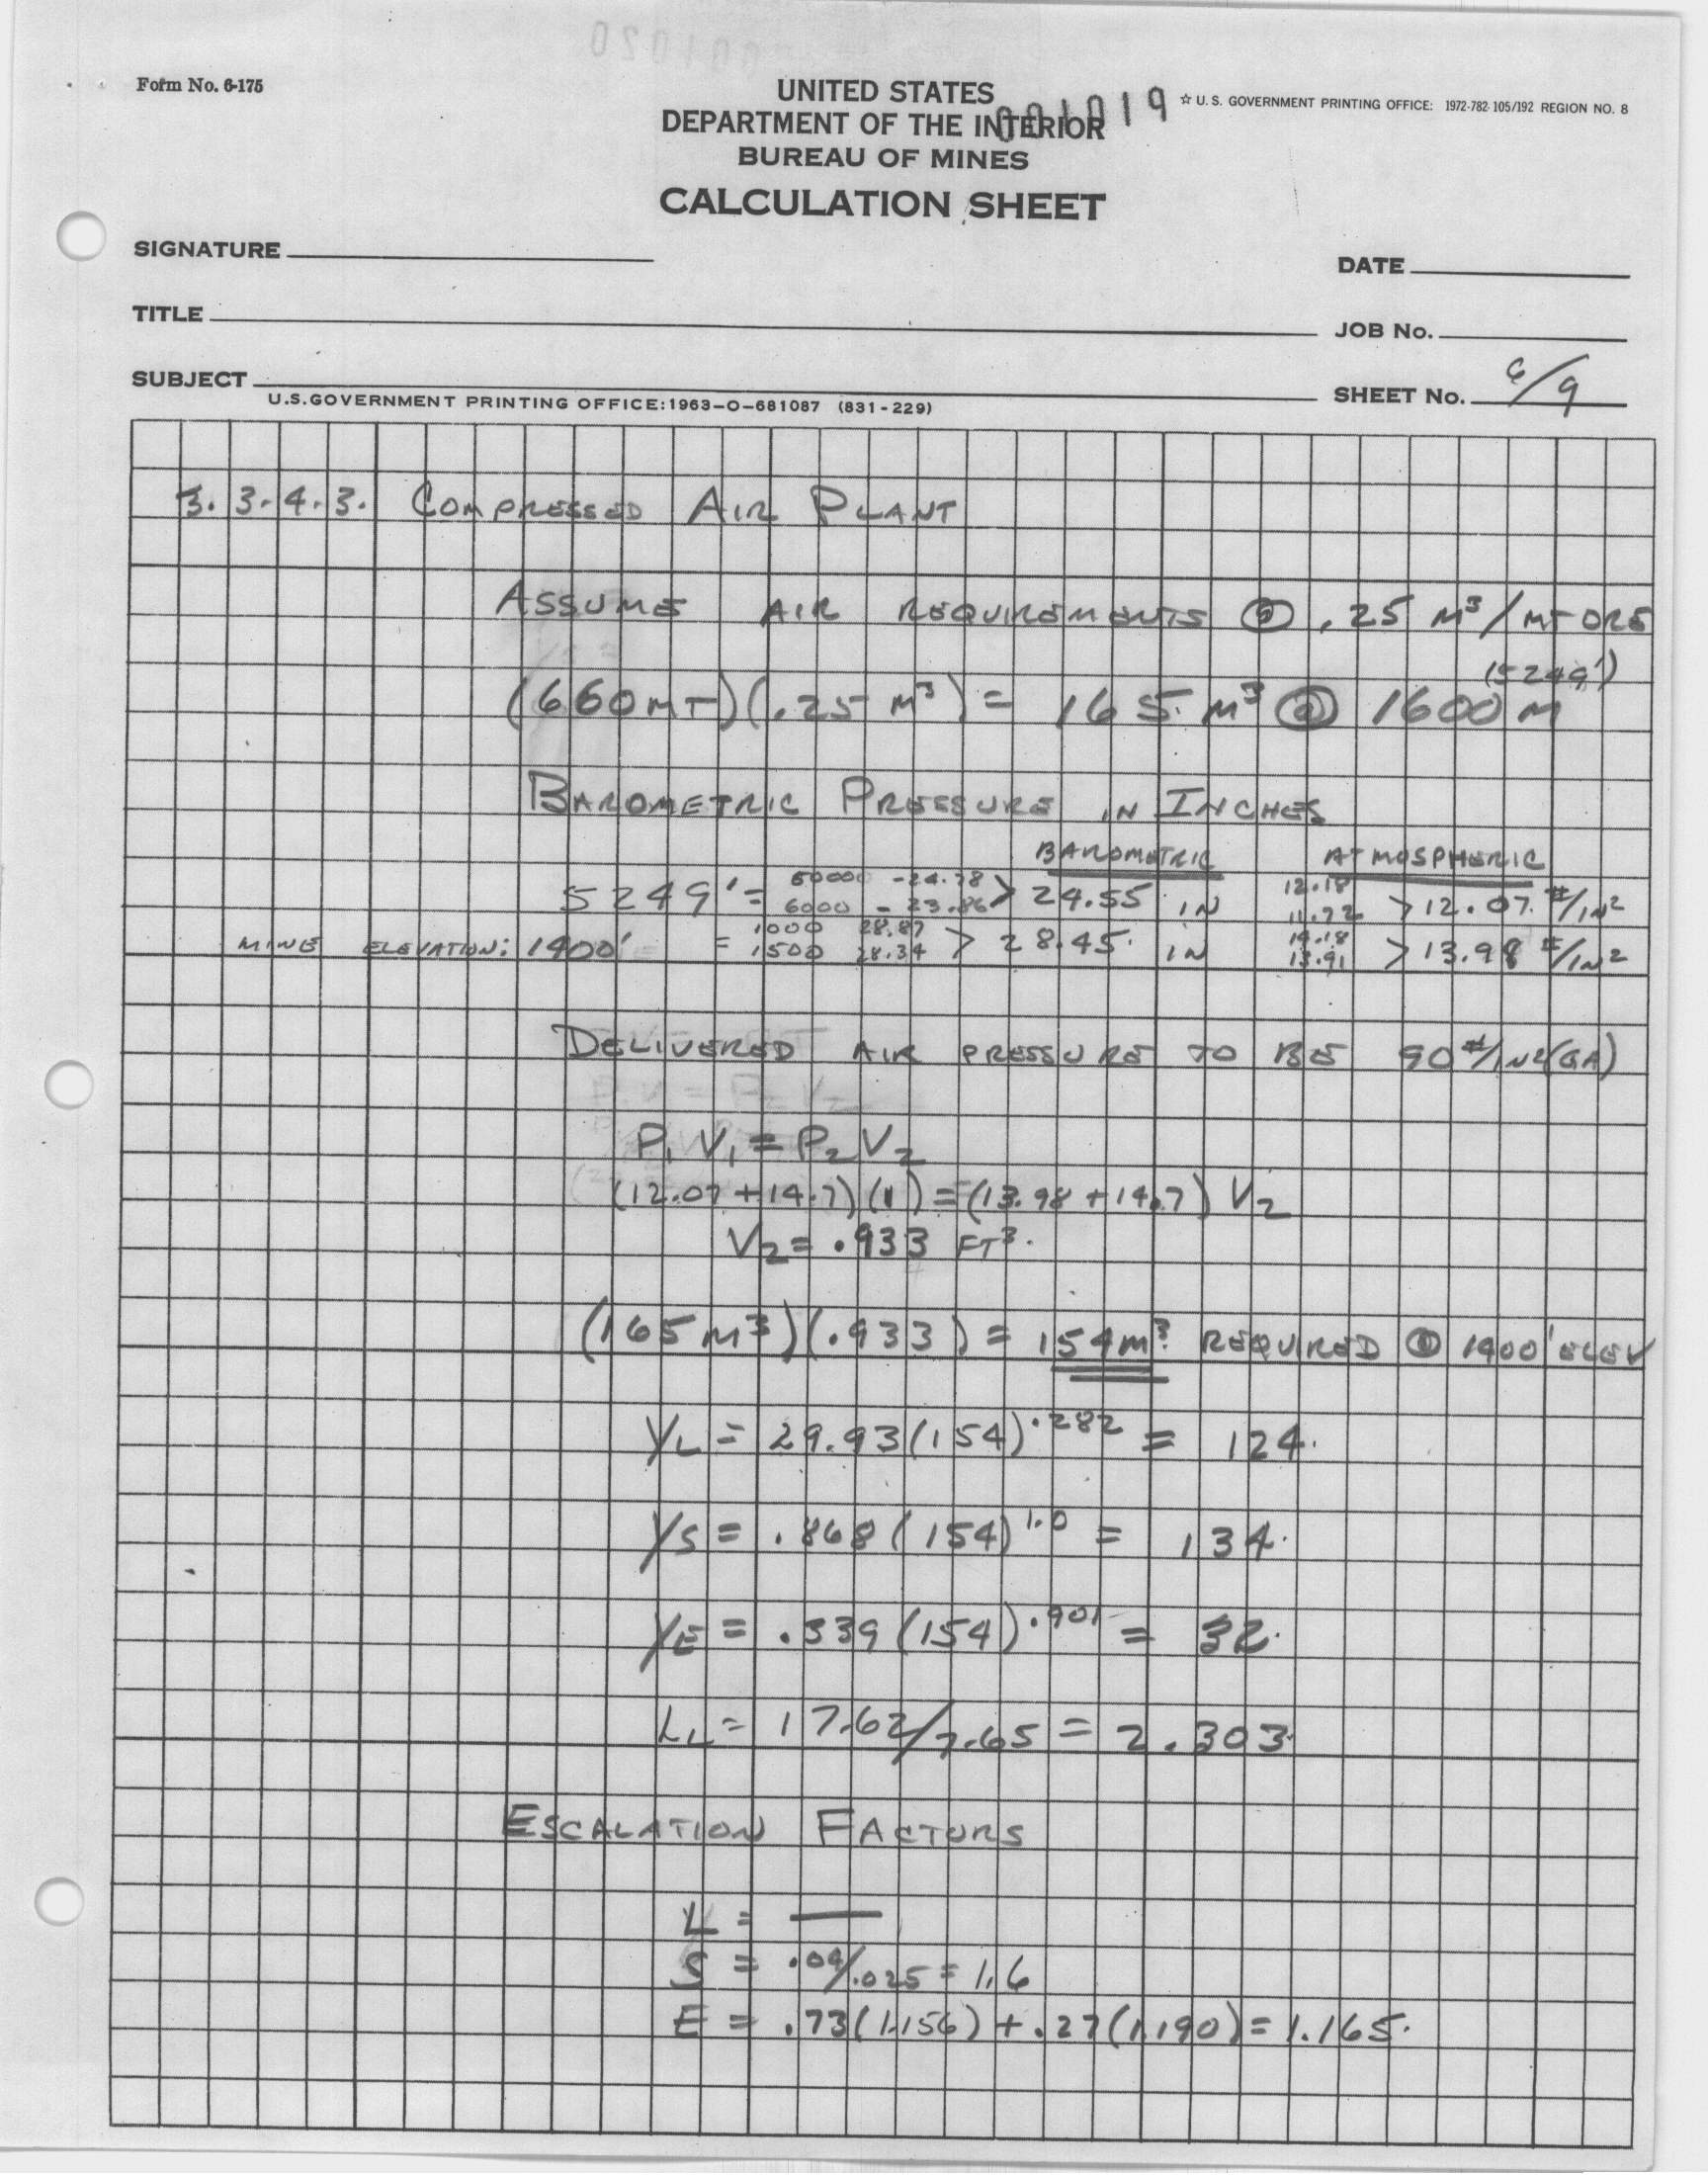 Form No. 6-175
UNITED STATES
DEPARTMENT OF THE INTERIOR
BUREAU OF MINES
CALCULATION SHEET
001019
☆ U. S. GOVERNMENT PRINTING OFFICE: 1972-782-105/192 REGION NO. 8
SIGNATURE
DATE
TITLE
JOB No.
SUBJECT
SHEET No. 6/9
U.S.GOVERNMENT PRINTING OFFICE:1963-O-681087 (831-229)
3.3.4.3. COMPRESSED AIR PLANT
ASSUME AIR REQUIREMENTS @ .25 M³/MT ORE
(5249')
(660MT)(.25 M³) = 165. M³ @ 1600 M
BAROMETRIC PRESSURE IN INCHES
BAROMETRIC ATMOSPHERIC
5249' = 50000 - 24.78 12.18
6000 - 23.86 > 24.55 IN 11.72 > 12.07 #/IN²
MINE ELEVATION: 1400' = 1000 28.87 14.18
1500 28.34 > 28.45 IN 13.91 > 13.98 #/IN²
DELIVERED AIR PRESSURE TO BE 90 #/IN²(GA)
P₁V₁ = P₂V₂
(12.07 + 14.7)(1) = (13.98 + 14.7) V₂
V₂ = .933 FT³.
(165 M³)(.933) = 154 M³ REQUIRED @ 1400' ELEV
YL = 29.93(154)^.282 = 124.
YS = .868(154)^1.0 = 134.
YE = .339(154)^.901 = 32.
LL = 17.62/7.65 = 2.303
ESCALATION FACTORS
L = —
S = .04/.025 = 1.6
E = .73(1.156) + .27(1.190) = 1.165.